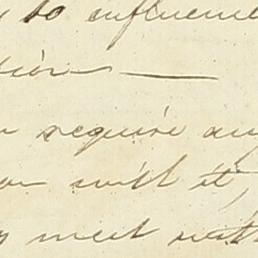 to influence
tion —
require any
will it,
meet with